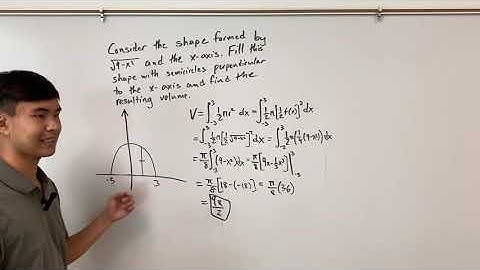 Consider the shape formed by
√9-x² and the x-axis. Fill this
shape with semicircles perpendicular
to the x-axis and find the
resulting volume.
V = ∫₋₃³ ½πr² dx = ∫₋₃³ ½π[½f(x)]² dx
= ∫₋₃³ ½π[½√9-x²]² dx = ∫₋₃³ ½π(¼(9-x²)) dx
= π/8 ∫₋₃³ (9-x²) dx = π/8 [9x - ⅓x³]|₋₃³
= π/8 [18-(-18)] = π/8 (36)
= 9π/2
-3 3